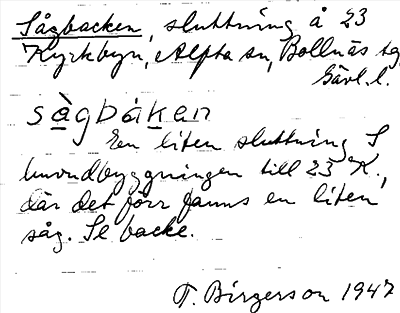 Sågbacken, sluttning å 23
Kyrkbyn, Alfta sn, Bollnäs tg
Gävl. l.
sågbákan
En liten sluttning S
huvudbyggningen till 23 K.,
där det förr fanns en liten
såg. Se backe.
T. Birgerson 1947